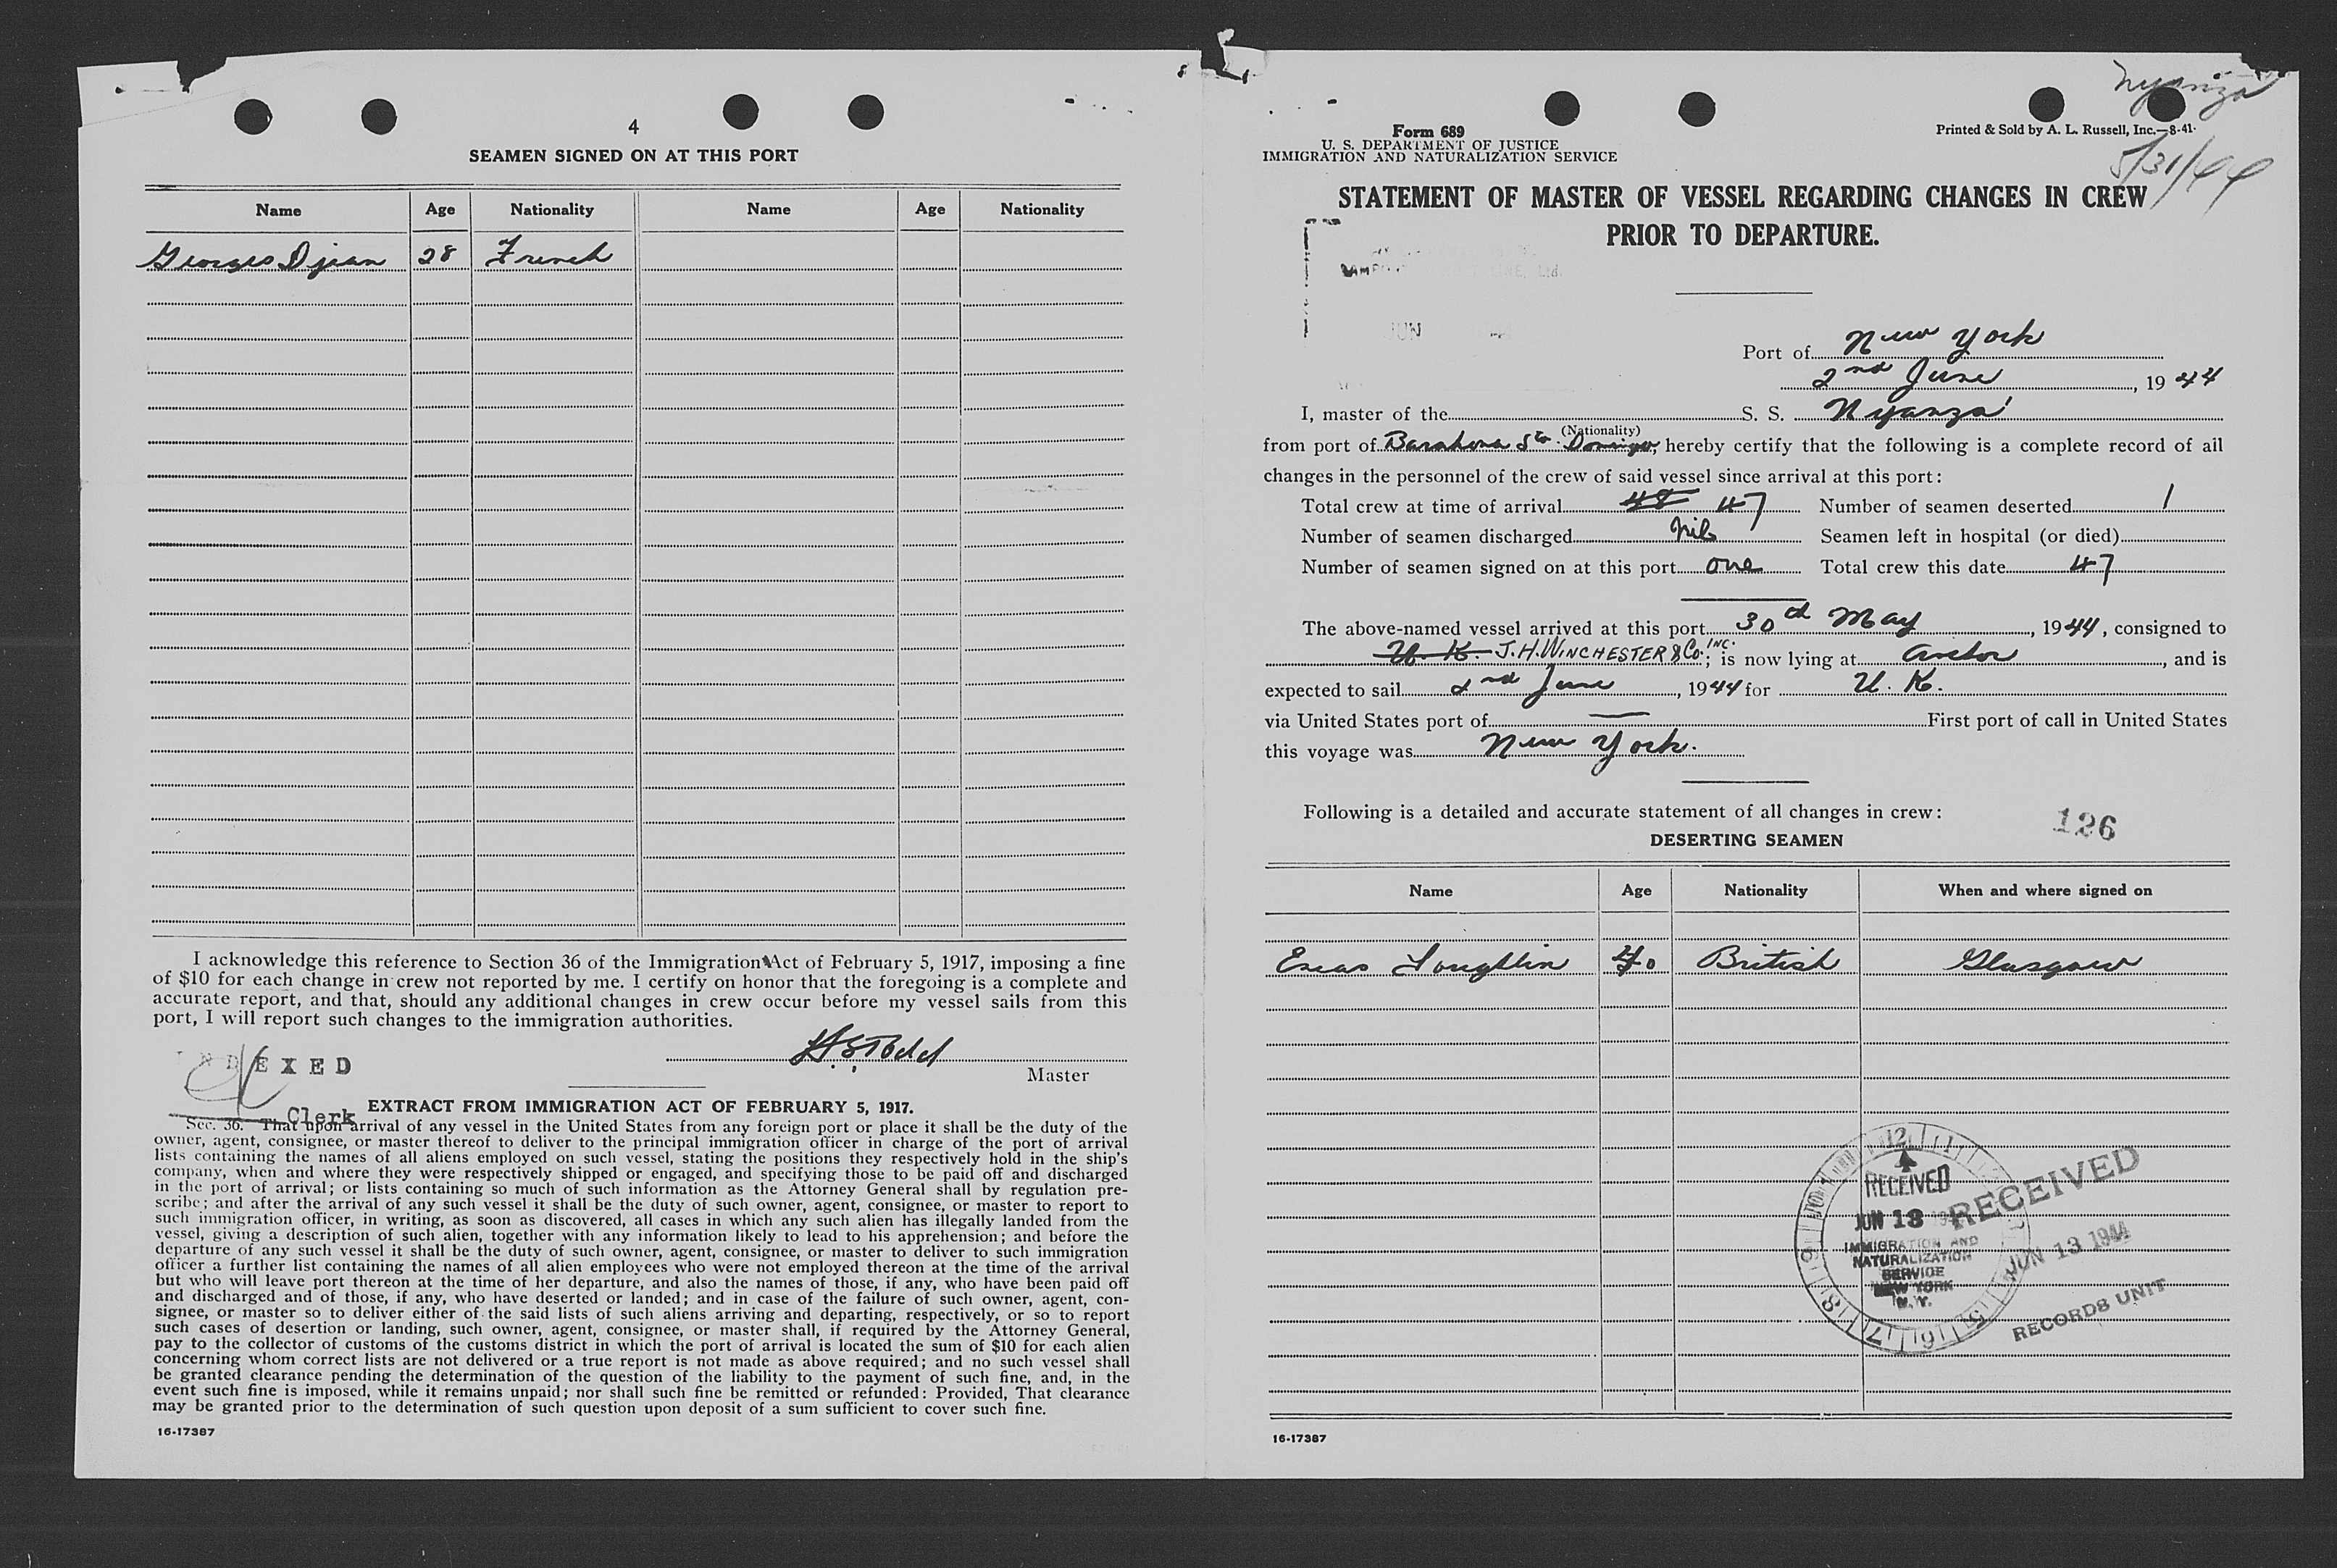 4
SEAMEN SIGNED ON AT THIS PORT
Name Age Nationality Name Age Nationality
Georges Djian 28 French
I acknowledge this reference to Section 36 of the Immigration Act of February 5, 1917, imposing a fine
of $10 for each change in crew not reported by me. I certify on honor that the foregoing is a complete and
accurate report, and that, should any additional changes in crew occur before my vessel sails from this
port, I will report such changes to the immigration authorities.
Master
INDEXED
Clerk
EXTRACT FROM IMMIGRATION ACT OF FEBRUARY 5, 1917.
Sec. 36. That upon arrival of any vessel in the United States from any foreign port or place it shall be the duty of the
owner, agent, consignee, or master thereof to deliver to the principal immigration officer in charge of the port of arrival
lists containing the names of all aliens employed on such vessel, stating the positions they respectively hold in the ship's
company, when and where they were respectively shipped or engaged, and specifying those to be paid off and discharged
in the port of arrival; or lists containing so much of such information as the Attorney General shall by regulation pre-
scribe; and after the arrival of any such vessel it shall be the duty of such owner, agent, consignee, or master to report to
such immigration officer, in writing, as soon as discovered, all cases in which any such alien has illegally landed from the
vessel, giving a description of such alien, together with any information likely to lead to his apprehension; and before the
departure of any such vessel it shall be the duty of such owner, agent, consignee, or master to deliver to such immigration
officer a further list containing the names of all alien employees who were not employed thereon at the time of the arrival
but who will leave port thereon at the time of her departure, and also the names of those, if any, who have been paid off
and discharged and of those, if any, who have deserted or landed; and in case of the failure of such owner, agent, con-
signee, or master so to deliver either of the said lists of such aliens arriving and departing, respectively, or so to report
such cases of desertion or landing, such owner, agent, consignee, or master shall, if required by the Attorney General,
pay to the collector of customs of the customs district in which the port of arrival is located the sum of $10 for each alien
concerning whom correct lists are not delivered or a true report is not made as above required; and no such vessel shall
be granted clearance pending the determination of the question of the liability to the payment of such fine, and, in the
event such fine is imposed, while it remains unpaid; nor shall such fine be remitted or refunded: Provided, That clearance
may be granted prior to the determination of such question upon deposit of a sum sufficient to cover such fine.
16-17387
Nyanza
5/31/44
Form 689
U. S. DEPARTMENT OF JUSTICE
IMMIGRATION AND NATURALIZATION SERVICE
Printed & Sold by A. L. Russell, Inc.—8-41.
STATEMENT OF MASTER OF VESSEL REGARDING CHANGES IN CREW
PRIOR TO DEPARTURE.
JUN
Port of New York
2nd June, 1944
I, master of the S. S. Nyanza
(Nationality)
from port of Barahona Sto. Domingo, hereby certify that the following is a complete record of all
changes in the personnel of the crew of said vessel since arrival at this port:
Total crew at time of arrival 48 47 Number of seamen deserted 1
Number of seamen discharged Nil Seamen left in hospital (or died)
Number of seamen signed on at this port one Total crew this date 47
The above-named vessel arrived at this port 30th May, 1944, consigned to
U. K. J. H. WINCHESTER & Co. INC.; is now lying at anchor, and is
expected to sail 2nd June, 1944 for U. K.
via United States port of — First port of call in United States
this voyage was New York.
Following is a detailed and accurate statement of all changes in crew:
126
DESERTING SEAMEN
Name Age Nationality When and where signed on
40 British Glasgow
RECEIVED
JUN 13
IMMIGRATION AND
NATURALIZATION
SERVICE
NEW YORK
N. Y.
RECEIVED
JUN 13 1944
RECORDS UNIT
16-17387